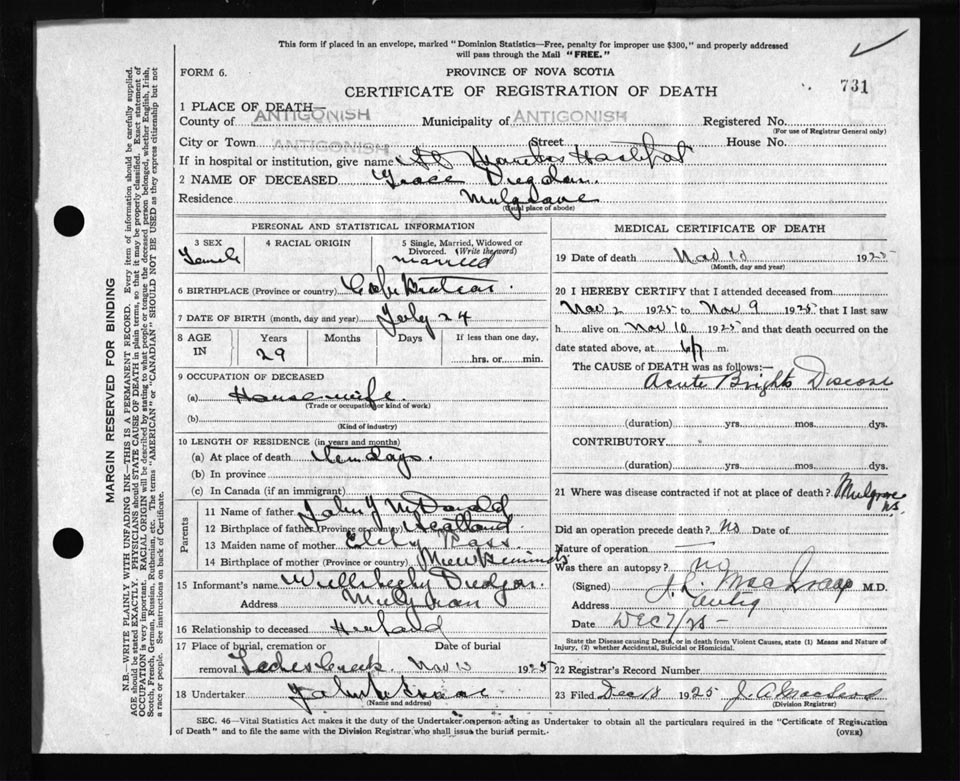 This form if placed in an envelope, marked "Dominion Statistics—Free, penalty for improper use $300," and properly addressed
will pass through the Mail "FREE."
FORM 6.
PROVINCE OF NOVA SCOTIA
731
CERTIFICATE OF REGISTRATION OF DEATH
1 PLACE OF DEATH—
County of ANTIGONISH Municipality of ANTIGONISH Registered No.
(For use of Registrar General only)
City or Town ANTIGONISH Street House No.
If in hospital or institution, give name St Hospital
2 NAME OF DECEASED Grace
Residence Mulgrave
(Usual place of abode)
PERSONAL AND STATISTICAL INFORMATION
3 SEX
Female
4 RACIAL ORIGIN
5 Single, Married, Widowed or
Divorced. (Write the word)
married
6 BIRTHPLACE (Province or country)
7 DATE OF BIRTH (month, day and year) July 24
8 AGE IN Years Months Days If less than one day,
29 hrs. or min.
9 OCCUPATION OF DECEASED
(a) Housewife
(Trade or occupation or kind of work)
(b)
(Kind of industry)
10 LENGTH OF RESIDENCE (in years and months)
(a) At place of death ten days.
(b) In province
(c) In Canada (if an immigrant)
Parents
11 Name of father John McDonald
12 Birthplace of father (Province or country)
13 Maiden name of mother
14 Birthplace of mother (Province or country)
15 Informant's name
Address
16 Relationship to deceased Husband
17 Place of burial, cremation or Date of burial
removal Nov 10 1925
18 Undertaker John
(Name and address)
MEDICAL CERTIFICATE OF DEATH
19 Date of death Nov 10 1925
(Month, day and year)
20 I HEREBY CERTIFY that I attended deceased from
Nov 2 1925 to Nov 9 1925 that I last saw
h alive on Nov 10 1925 and that death occurred on the
date stated above, at m.
The CAUSE of DEATH was as follows:—
Acute Brights Disease
(duration) yrs. mos. dys.
CONTRIBUTORY
(duration) yrs. mos. dys.
21 Where was disease contracted if not at place of death? Mulgrave
N.S.
Did an operation precede death? no Date of
Nature of operation —
Was there an autopsy? no
(Signed) M.D.
Address Antig
Date DEC 7/25
State the Disease causing Death, or in death from Violent Causes, state (1) Means and Nature of
Injury, (2) whether Accidental, Suicidal or Homicidal.
22 Registrar's Record Number
23 Filed Dec 18 1925 J. A. MacLeod
(Division Registrar)
SEC. 46—Vital Statistics Act makes it the duty of the Undertaker or person acting as Undertaker to obtain all the particulars required in the "Certificate of Registration
of Death" and to file the same with the Division Registrar who shall issue the burial permit.
(OVER)
MARGIN RESERVED FOR BINDING
N.B.—WRITE PLAINLY WITH UNFADING INK—THIS IS A PERMANENT RECORD. Every item of information should be carefully supplied.
AGE should be stated EXACTLY. PHYSICIANS should STATE CAUSE OF DEATH in plain terms, so that it may be properly classified. Exact statement of
OCCUPATION is very important. RACIAL ORIGIN will be described by stating to what people or tongue the deceased person belonged, whether English, Irish,
Scotch, French, German, Russian, Ruthenian, etc. The terms "AMERICAN" or "CANADIAN" SHOULD NOT BE USED as they express citizenship but not
a race or people. See instructions on back of Certificate.